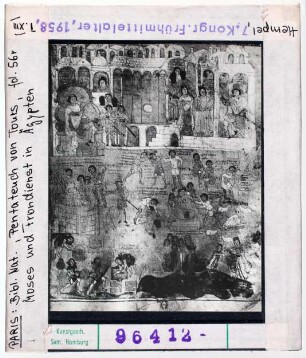 Hempel, 7. Kongr. Frühmittelalter, 1958,
T. XIII
PARIS: Bibl. Nat., Pentateuch von Tours, fol. 56r
Moses und Frondienst in Ägypten
Kunstgesch.
Sem. Hamburg
96412-